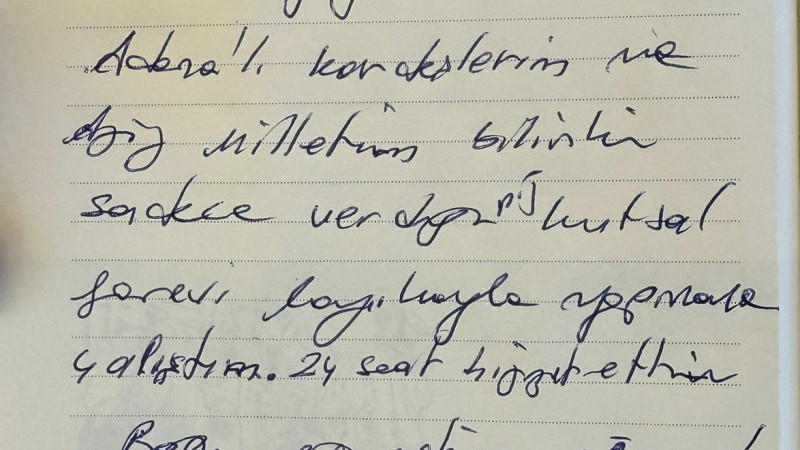 Adana'lı kardeşlerim ve
Aziz Milletim bilinki
sadece verdiğiniz kutsal
görevi layıkıyla yapmaya
çalıştım. 24 saat hizmet ettim